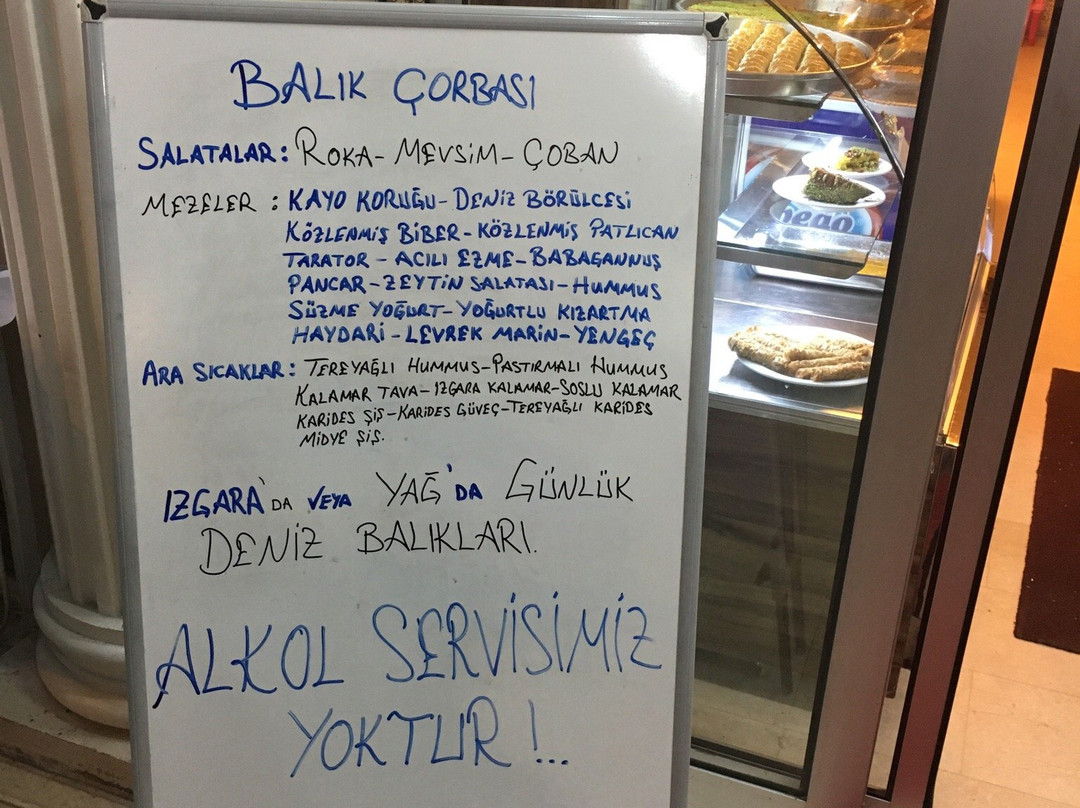 BALIK ÇORBASI
SALATALAR: ROKA-MEVSİM-ÇOBAN
MEZELER : KAYO KORUĞU-DENİZ BÖRÜLCESİ
KÖZLENMİŞ BİBER-KÖZLENMİŞ PATLICAN
TARATOR - ACILI EZME-BABAGANNUŞ
PANCAR-ZEYTİN SALATASI-HUMMUS
SÜZME YOĞURT-YOĞURTLU KIZARTMA
HAYDARİ-LEVREK MARİN-YENGEÇ
ARA SICAKLAR: TEREYAĞLI HUMMUS-PASTIRMALI HUMMUS
KALAMAR TAVA-IZGARA KALAMAR-SOSLU KALAMAR
KARİDES ŞİŞ-KARİDES GÜVEÇ-TEREYAĞLI KARİDES
MİDYE ŞİŞ.
IZGARA'DA VEYA YAĞ'DA GÜNLÜK
DENİZ BALIKLARI.
ALKOL SERVİSİMİZ
YOKTUR!...